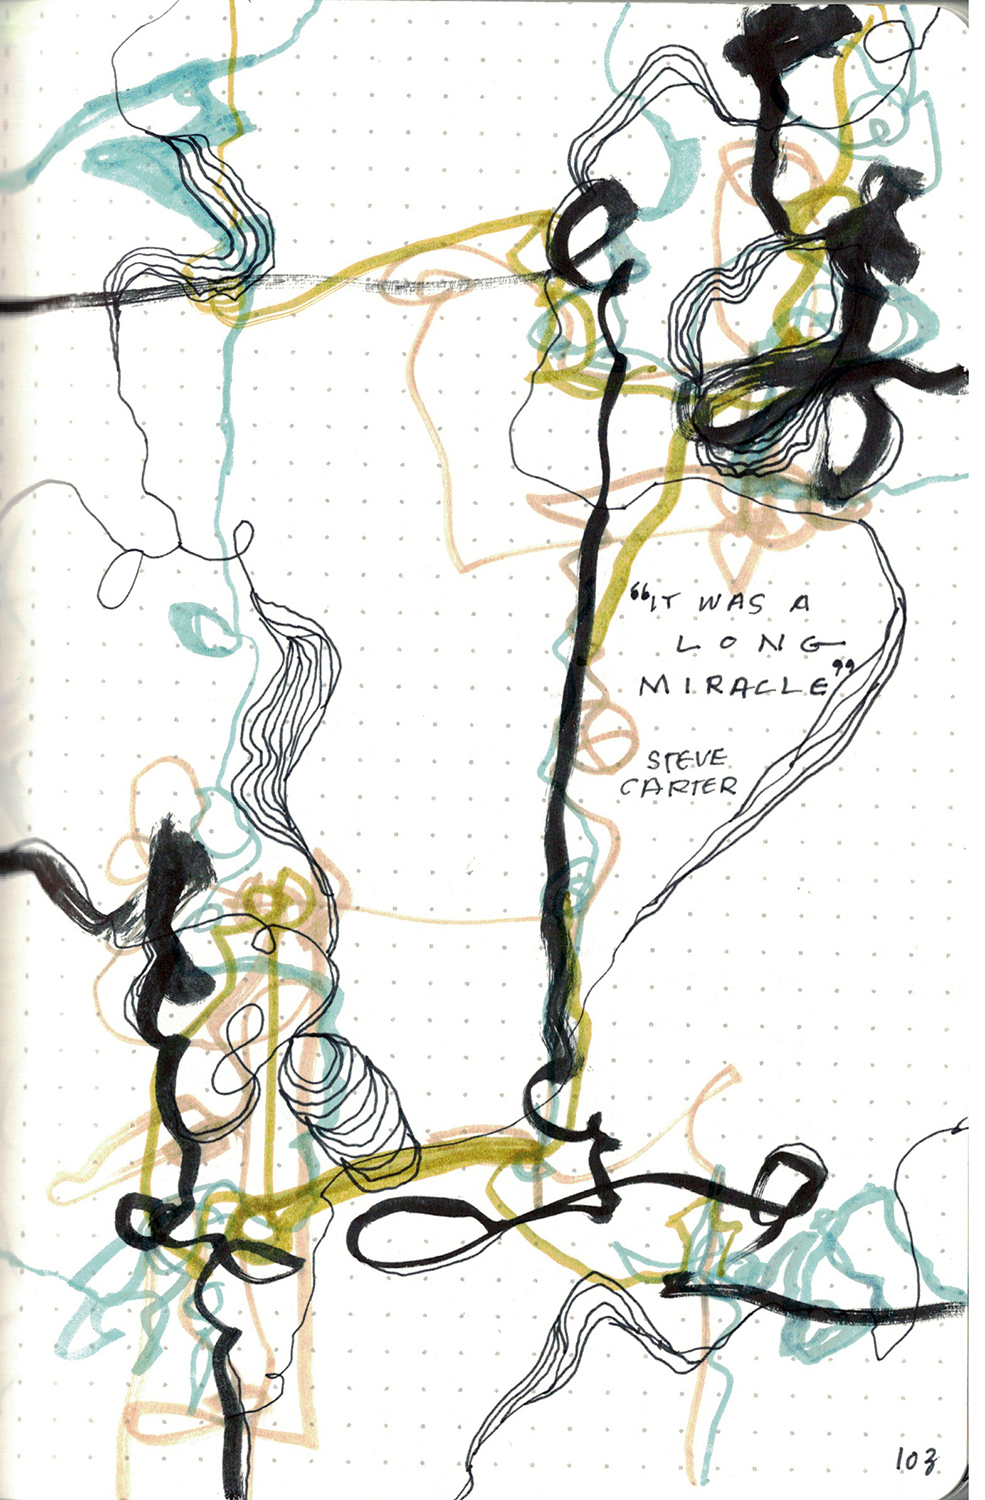 “IT WAS A
LONG
MIRACLE”
STEVE
CARTER
103